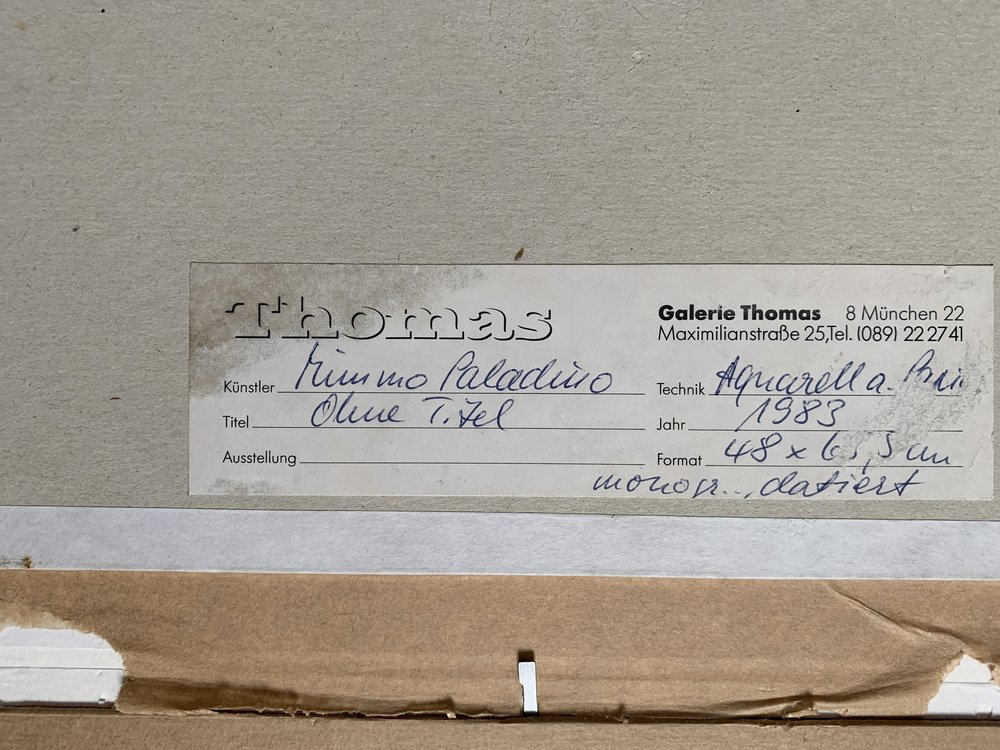 Thomas
Galerie Thomas 8 München 22
Maximilianstraße 25, Tel. (089) 22 27 41
Künstler Mimmo Paladino
Titel Ohne Titel
Ausstellung
Technik Aquarell a.
Jahr 1983
Format 48 x cm
monogr., datiert